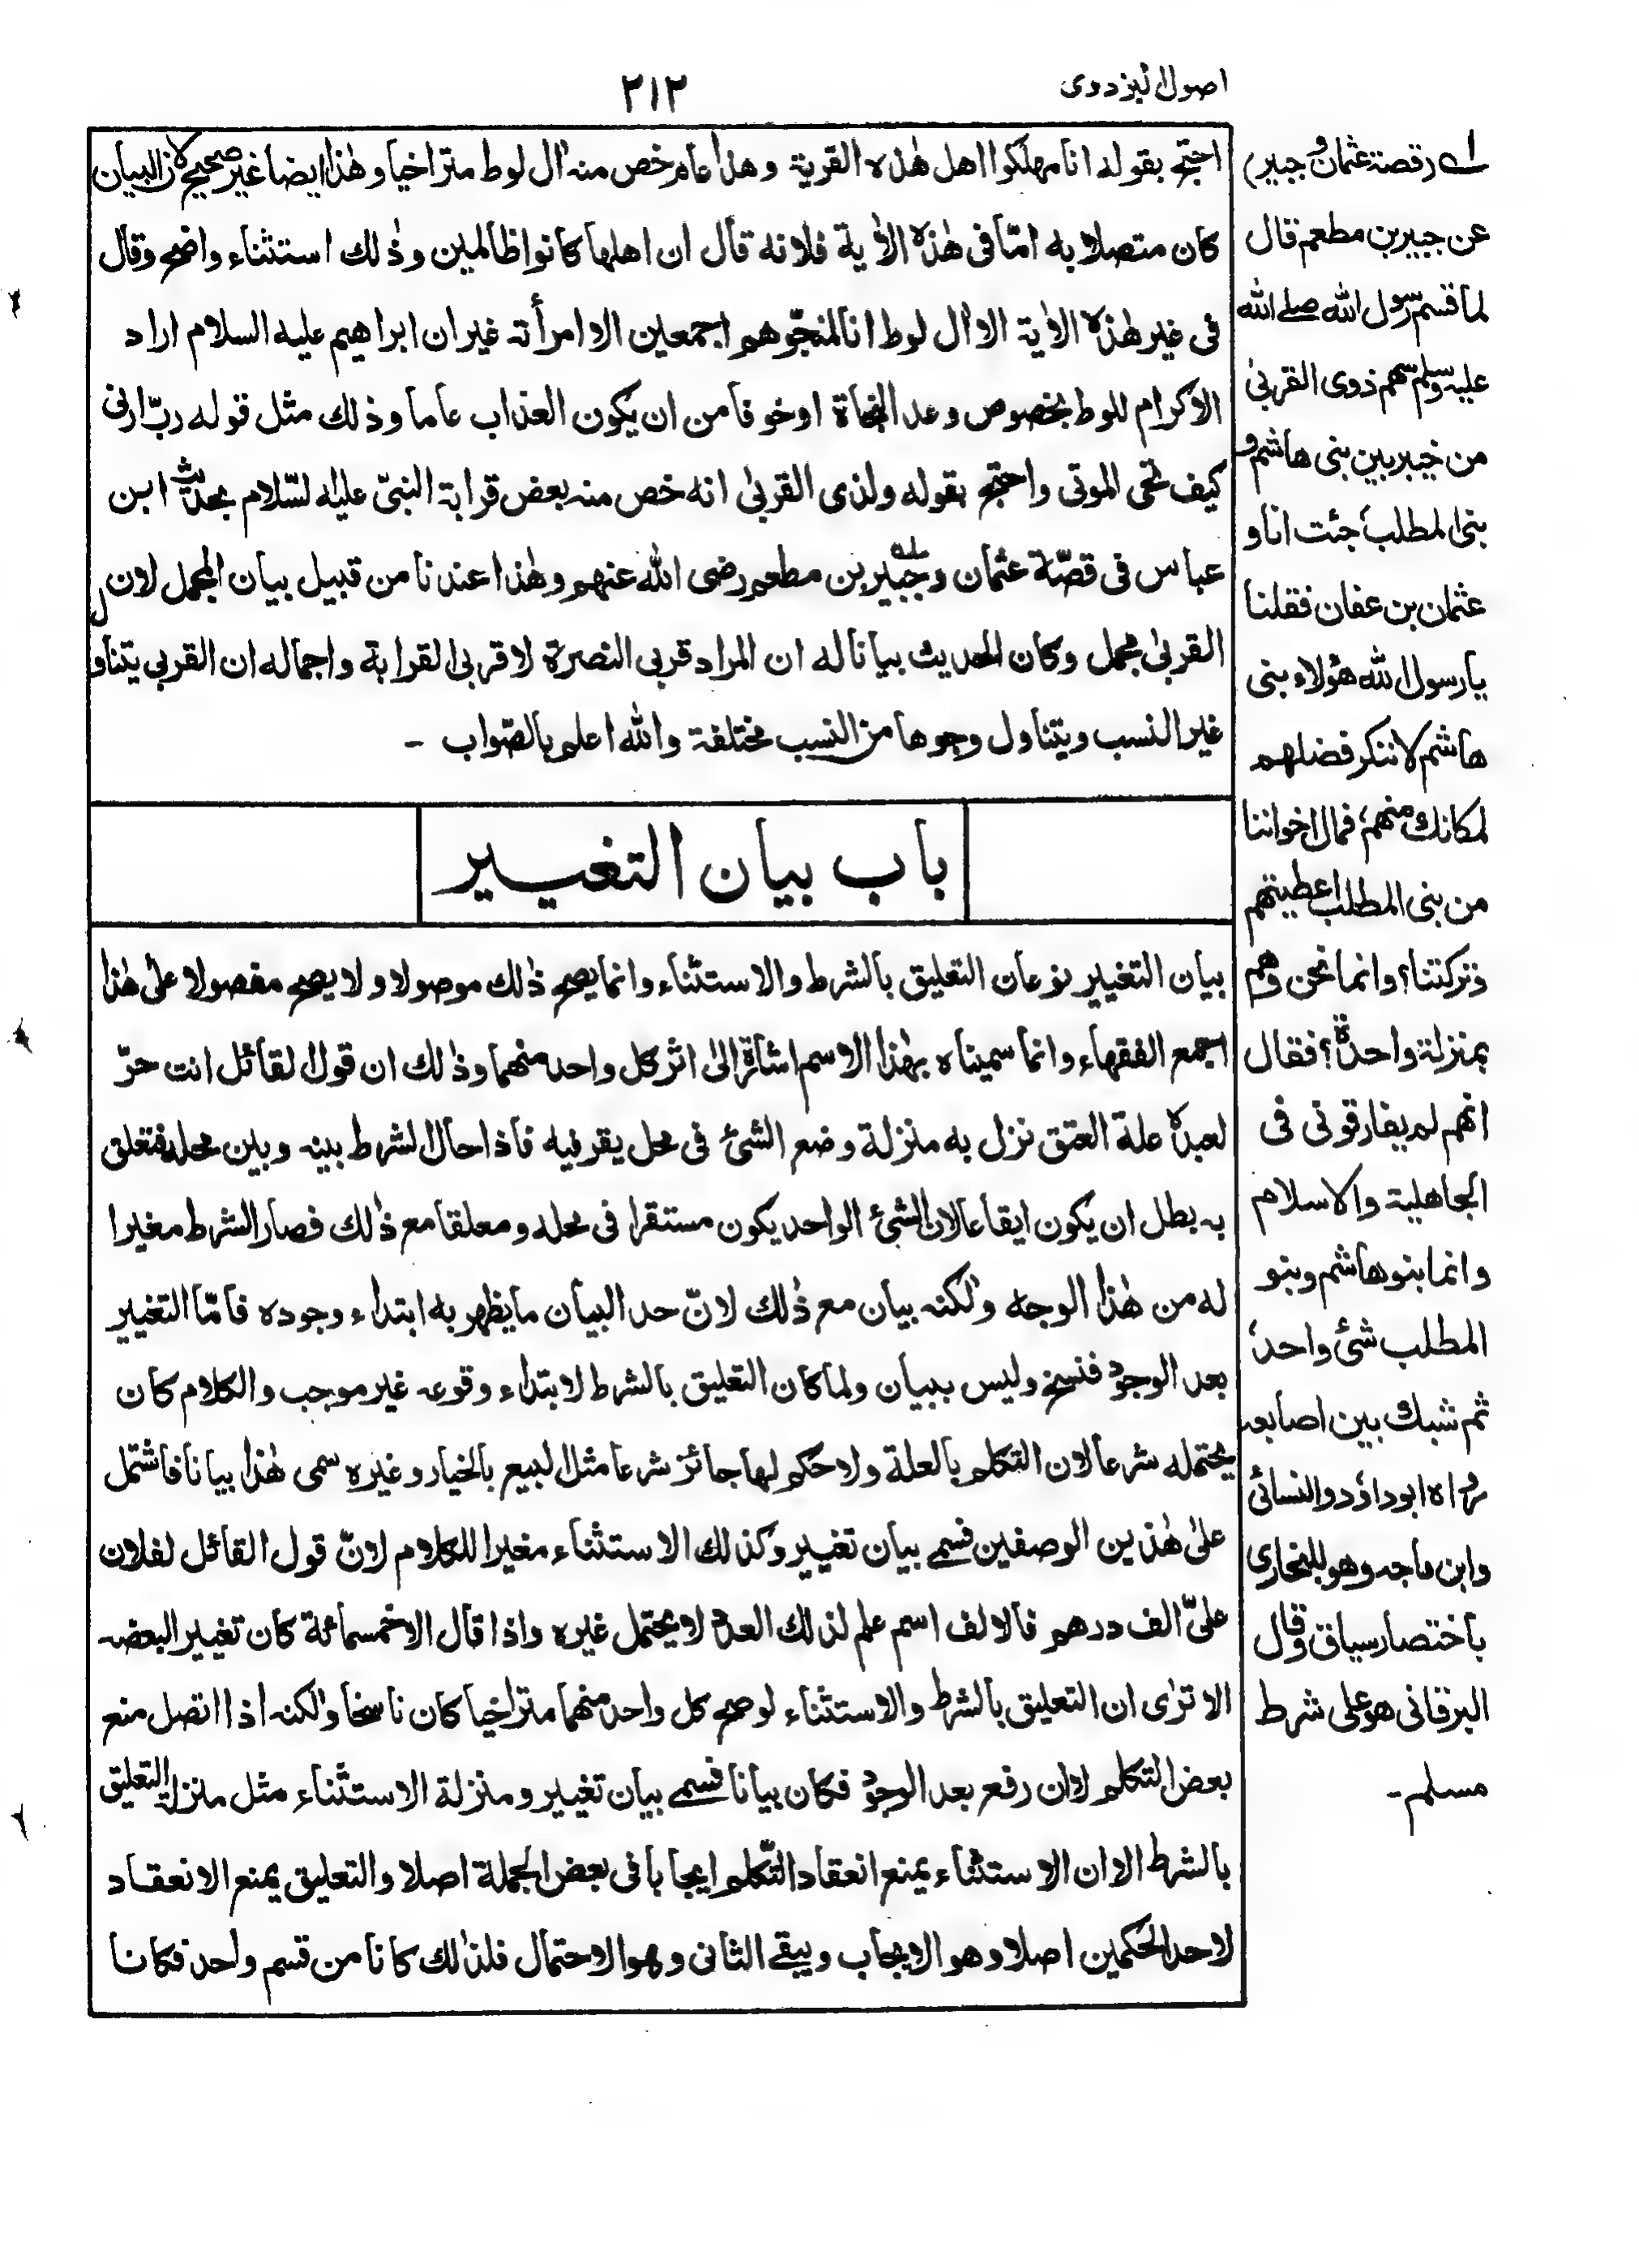 اصول البزدوی
۲۱۲
احتج بقوله انا مهلكوا اهل هٰذه القرية وهذا عام خص منه اٰل لوط متراخيا وهٰذا ايضا غير صحيح لان البيان
كان متصلا به امّا فى هٰذه الاٰية فلانه قال ان اهلها كانوا ظالمين وذٰلك استثناء واضح وقال
فى غير هٰذه الاٰية الا اٰل لوط انا لمنجّوهم اجمعين الا امرأته غير ان ابراهيم عليه السلام اراد
الاكرام للوط بخصوص وعد النجاة اوخوفا من ان يكون العذاب عاما وذلك مثل قوله ربّ ارنى
كيف تحى الموتى واحتج بقوله ولذى القربىٰ انه خص منه بعض قرابة النبىّ عليه لسّلام بحديث ابن
عباس فى قصّة عثمان وجبير بن مطعم رضى الله عنهم وهٰذا عندنا من قبيل بيان المجمل لان
القربىٰ مجمل وكان الحديث بيانا له ان المراد قربى النصرة لا قربى القرابة واجماله ان القربى يتناول
غير النسب ويتناول وجوها من النسب مختلفة والله اعلم بالصّواب -
باب بيان التغيير
بيان التغيير نوعان التعليق بالشرط والاستثناء وانما يصح ذٰلك موصولا ولا يصح مفصولا علىٰ هٰذا
اجمع الفقهاء وانما سميناه بهٰذا الاسم اشارة الىٰ اثر كل واحد منهما وذٰلك ان قول القائل انت حرّ
لعبده علة العتق نزل به منزلة وضع الشئ فى محل يقر فيه فاذا حال الشرط بينه وبين محله فتعلق
به بطل ان يكون ايقاعا لان الشئ الواحد يكون مستقرا فى محله ومعلقا مع ذٰلك فصار الشرط مغيرا
له من هٰذا الوجه ولٰكنه بيان مع ذٰلك لانّ حد البيان مايظهر به ابتداء وجوده فامّا التغيير
بعد الوجود فنسخ وليس ببيان ولما كان التعليق بالشرط لابتداء وقوعه غير موجب والكلام كان
يحتمله شرعا لان التكلم بالعلة ولا حكم لها جائز شرعا مثل البيع بالخيار وغيره سمى هٰذا بيانا فاشتمل
علىٰ هٰذين الوصفين فسمے بيان تغيير وكذلك الاستثناء مغيرا للكلام لانّ قول القائل لفلان
علىّ الف درهم فالالف اسم علم لذلك العدد لا يحتمل غيره واذا قال الا خمسمائة كان تغييرا لبعضه
الا ترٰى ان التعليق بالشرط والاستثناء لو صح كل واحد منهما متراخيا كان ناسخا ولٰكنه اذا اتصل منع
بعض التكلم لا ان رفع بعد الوجود فكان بيانا فسمے بيان تغيير ومنزلة الاستثناء مثل منزلة التعليق
بالشرط الا ان الاستثناء يمنع انعقاد التّكلم ايجابا فى بعض الجملة اصلا والتعليق يمنع الانعقاد
لاحد الحكمين اصلا وهو الايجاب ويبقے الثانى وهو الاحتمال فلذٰلك كانا من قسم واحد فكانا
لے (قصة عثمان و جبير)
عن جبير بن مطعم قال
لما قسم رسول الله صلے الله
عليه وسلم سهم ذوى القربىٰ
من خيبر بين بنى هاشم و
بنى المطلب، جئت انا و
عثمان بن عفان فقلنا
يارسول الله هٰؤلاء بنى
هاشم لا ننكر فضلهم
لمكانك منهم، فمال اخواننا
من بنى المطلب اعطيتهم
وتركتنا؟ وانما نحن وهم
بمنزلة واحدة؟ فقال
انهم لم يفارقونى فى
الجاهلية والاسلام
وانما بنو هاشم وبنو
المطلب شئ واحد،
ثم شبك بين اصابعه
رواه ابوداؤد والنسائى
وابن ماجه وهو للبخارى
باختصار سياق وقال
البرقانى هو على شرط
مسلم -